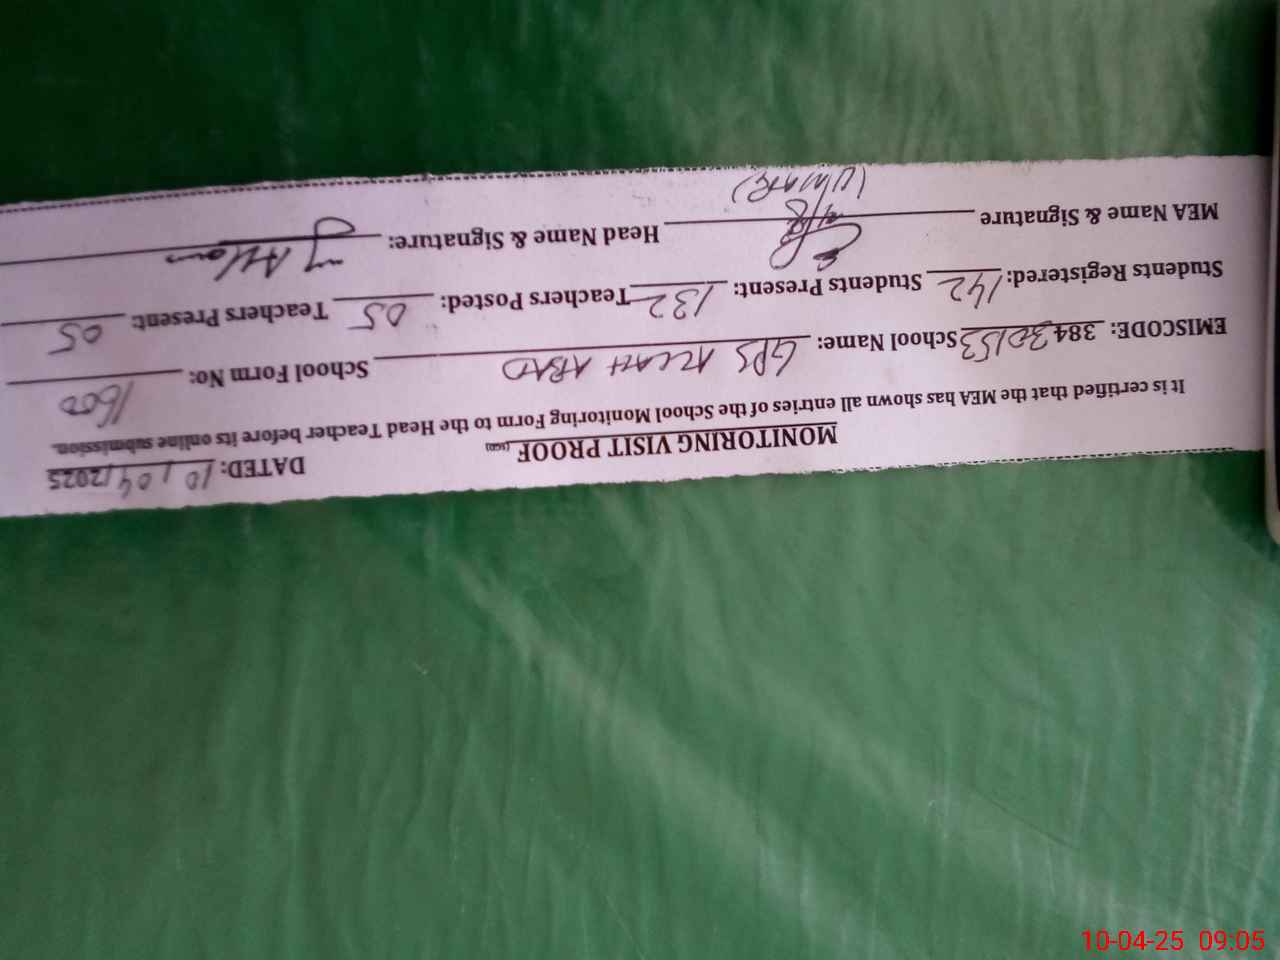 MONITORING VISIT PROOF DATED: 10/04/2025
It is certified that the MEA has shown all entries of the School Monitoring Form to the Head Teacher before its online submission.
EMISCODE: 38430153 School Name: GPS ALLAH ABAD School Form No: 1600
Students Registered: 142 Students Present: 132 Teachers Posted: 05 Teachers Present: 05
MEA Name & Signature Head Name & Signature:
(UMAR)
10-04-25 09:05